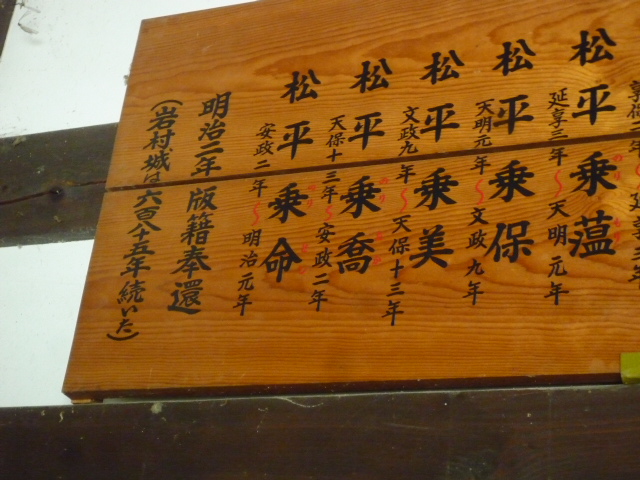 松平乗薀
延享三年〜天明元年
松平乗保
天明元年〜文政九年
松平乗美
文政九年〜天保十三年
松平乗喬
天保十三年〜安政二年
松平乗命
安政二年〜明治元年
明治二年 版籍奉還
(岩村城は六百八十五年続いた)